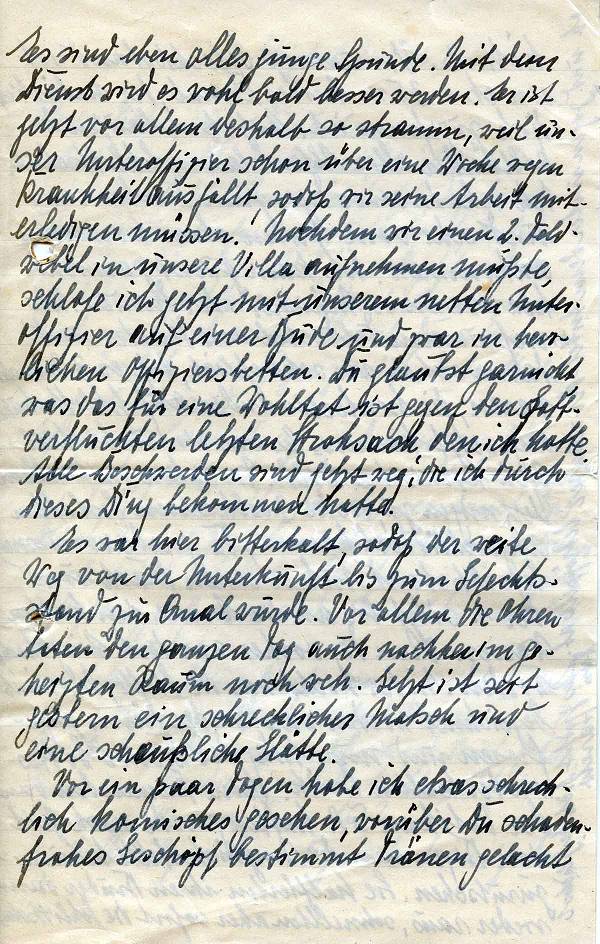 Es sind eben alles junge Hunde. Mit dem
Dienst wird es wohl bald besser werden. Er ist
jetzt vor allem deshalb so stramm, weil un-
ser Unteroffizier schon über eine Woche wegen
Krankheit ausfällt, sodaß wir seine Arbeit mit-
erledigen müssen. Nachdem wir einen 2. Feld-
webel in unsere Villa aufnehmen mußte,
schlafe ich jetzt mit unserem netten Unter-
offizier auf einer Bude und zwar in herr-
lichen Offiziersbetten. Du glaubst garnicht
was das für eine Wohltat ist gegen den Gott-
verfluchten letzten Strohsack den ich hatte.
Alle Beschwerden sind jetzt weg, die ich durch
dieses Ding bekommen hatte.
Es war hier bitterkalt, sodaß der weite
Weg von der Unterkunft bis zum Gefechts-
stand zur Qual wurde. Vor allem die Ohren
taten den ganzen Tag auch nachher im ge-
heizten Raum noch weh. Jetzt ist seit
gestern ein schrecklicher Matsch und
eine scheußliche Glätte.
Vor ein paar Tagen habe ich etwas schreck-
lich komisches gesehen, worüber Du schaden-
frohes Geschöpf bestimmt Tränen gelacht